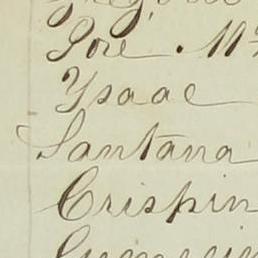 José . M
Ysaac
Santana
Crispin